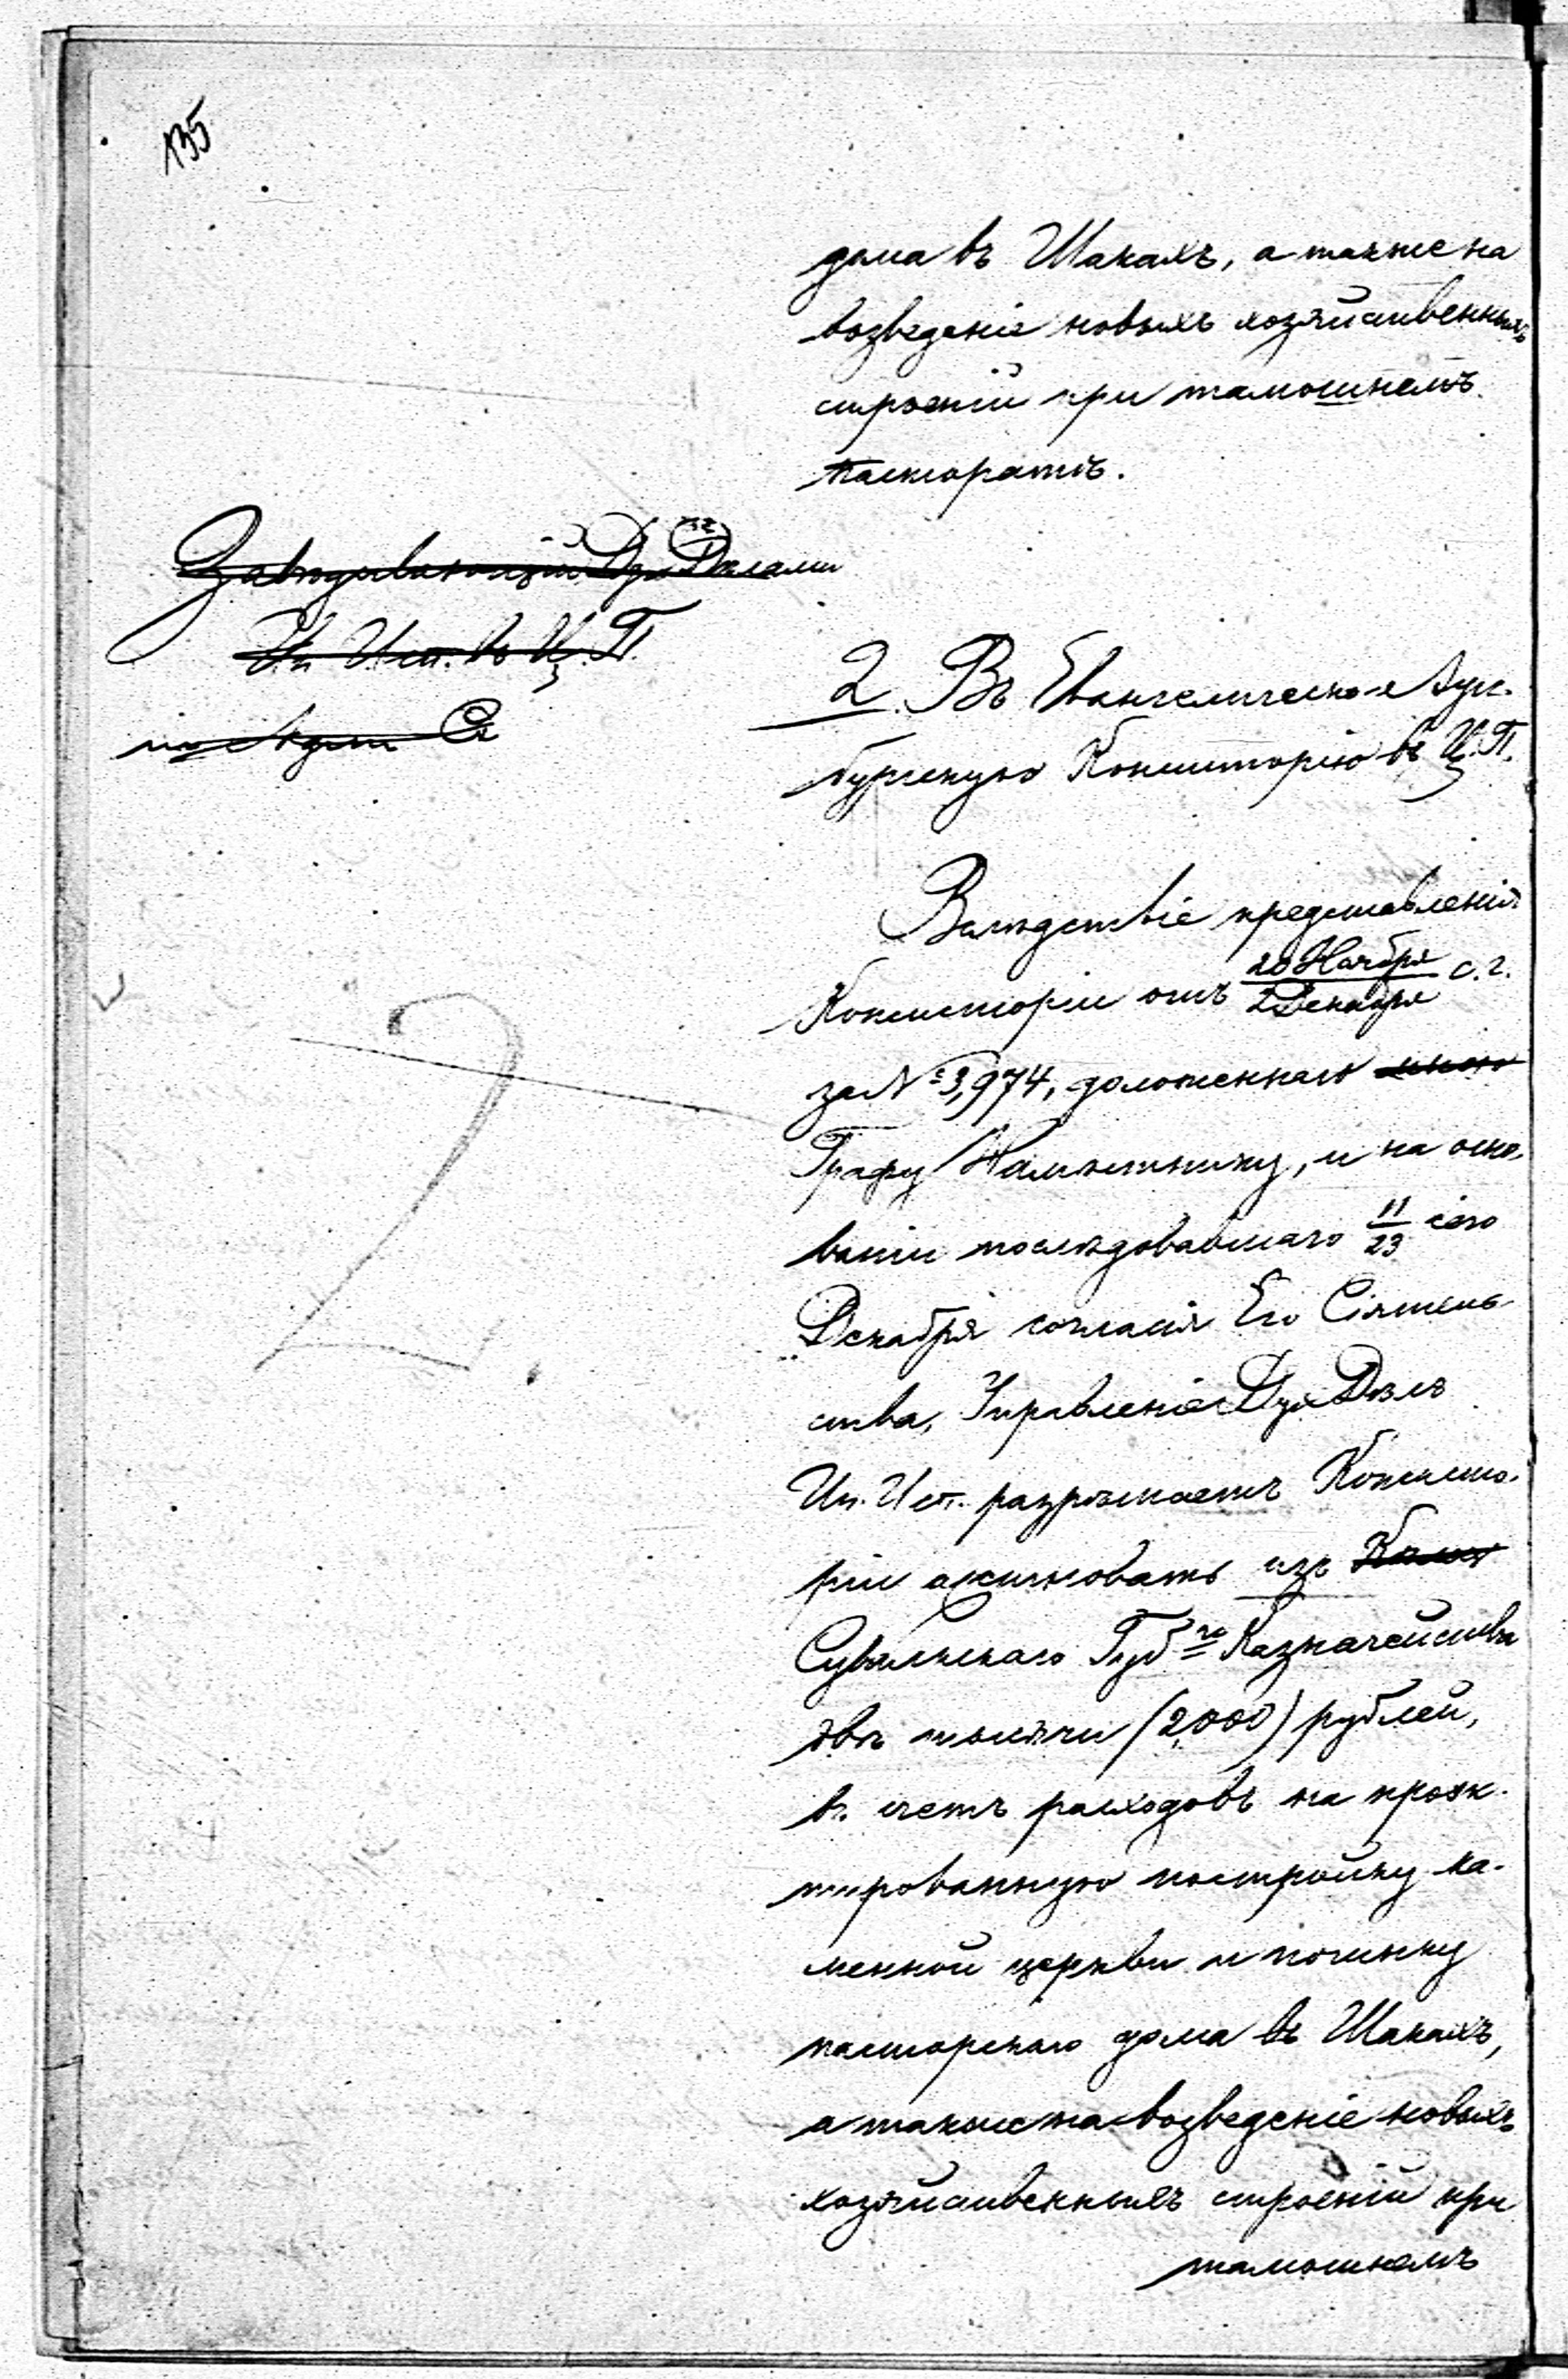 135
дома въ Шакахъ, а также на
возведеніе новыхъ хозяйственныхъ
строеній при тамошнемъ
пасторатѣ.
Завѣдывающій Дух. Дѣлами
Ин. Исп. въ Ц. П.
2. Въ Евангелическо-Ауг-
бургскую Консисторію въ Ц. П.
Вслѣдствіе представленія
Консисторіи отъ 20 Ноября / 2 Декабря с. г.
за № 3,974, доложеннаго мною
Графу Намѣстнику, и на осно-
ваніи послѣдовавшаго 11/23 сего
Декабря согласія Его Сіятель-
ства, Управленіе Дух. Дѣлъ
Ин. Исп. разрѣшаетъ Консисто-
ріи ассигновать изъ
Сувалкскаго Губ-го Казначейства
двѣ тысячи (2,000) рублей,
въ счетъ расходовъ на проэк-
тированную постройку ка-
менной церкви и починку
пасторскаго дома въ Шакахъ,
а также на возведеніе новыхъ
хозяйственныхъ строеній при
тамошнемъ